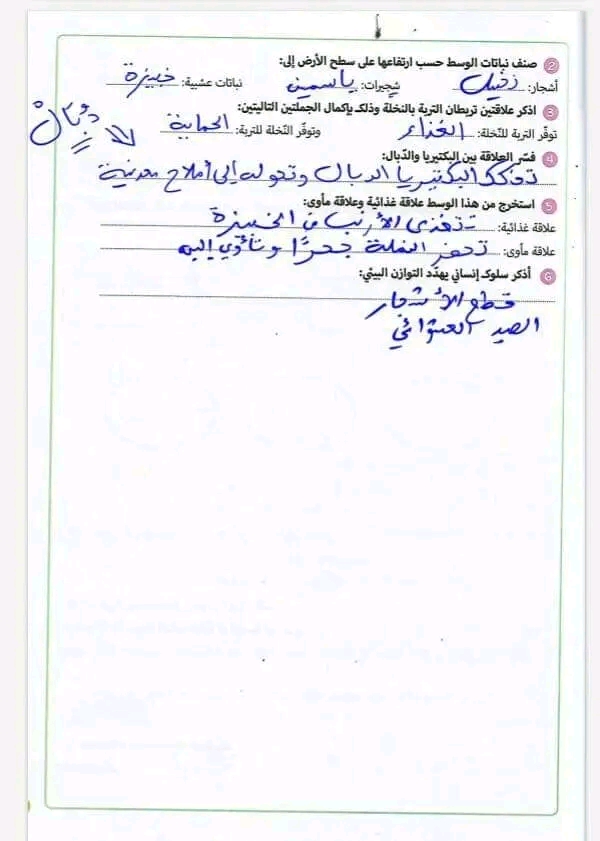 2 صنف نباتات الوسط حسب ارتفاعها على سطح الأرض إلى:
أشجار: نخيل شجيرات: ياسمين نباتات عشبية: خبيزة
3 اذكر علاقتين تربطان التربة بالنخلة وذلك بإكمال الجملتين التاليتين:
توفّر التربة للنّخلة: الغذاء وتوفّر النّخلة للتربة: الحماية
دُبَالْ
4 فسّر العلاقة بين البكتيريا والدّبال:
تفكك البكتيريا الدبال وتحوله إلى أملاح معدنية
5 استخرج من هذا الوسط علاقة غذائية وعلاقة مأوى:
علاقة غذائية: تتغذى الأرنب من الخبيزة
علاقة مأوى: تحفر النملة جحرًا وتأوي إليه
6 أذكر سلوك إنساني يهدّد التوازن البيئي:
قطع الأشجار
الصيد العشوائي